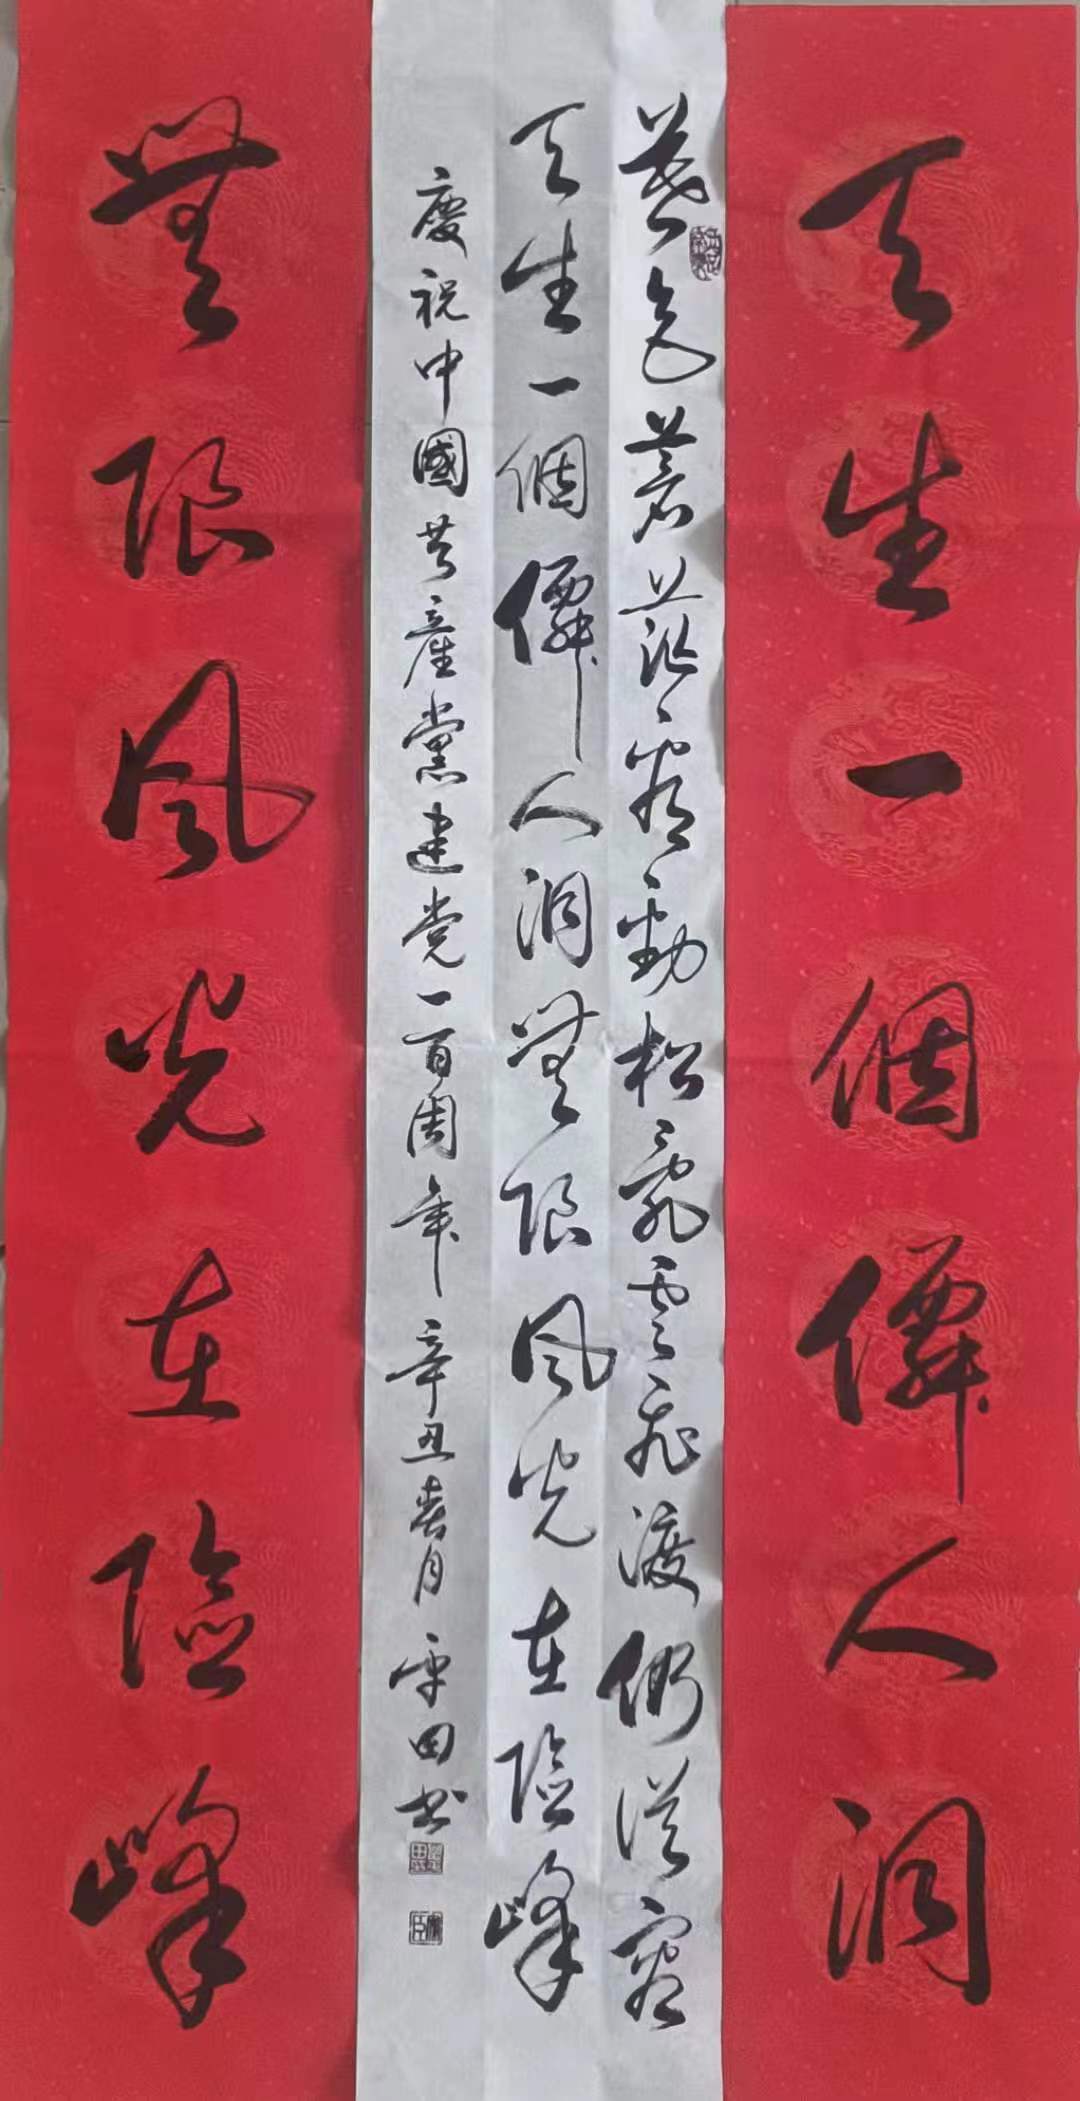 天生一個僊人洞
暮色蒼茫看勁松亂雲飛渡仍從容
天生一個僊人洞無限風光在險峰
慶祝中國共產黨建党一百周年辛丑春月平田书
無限風光在險峰